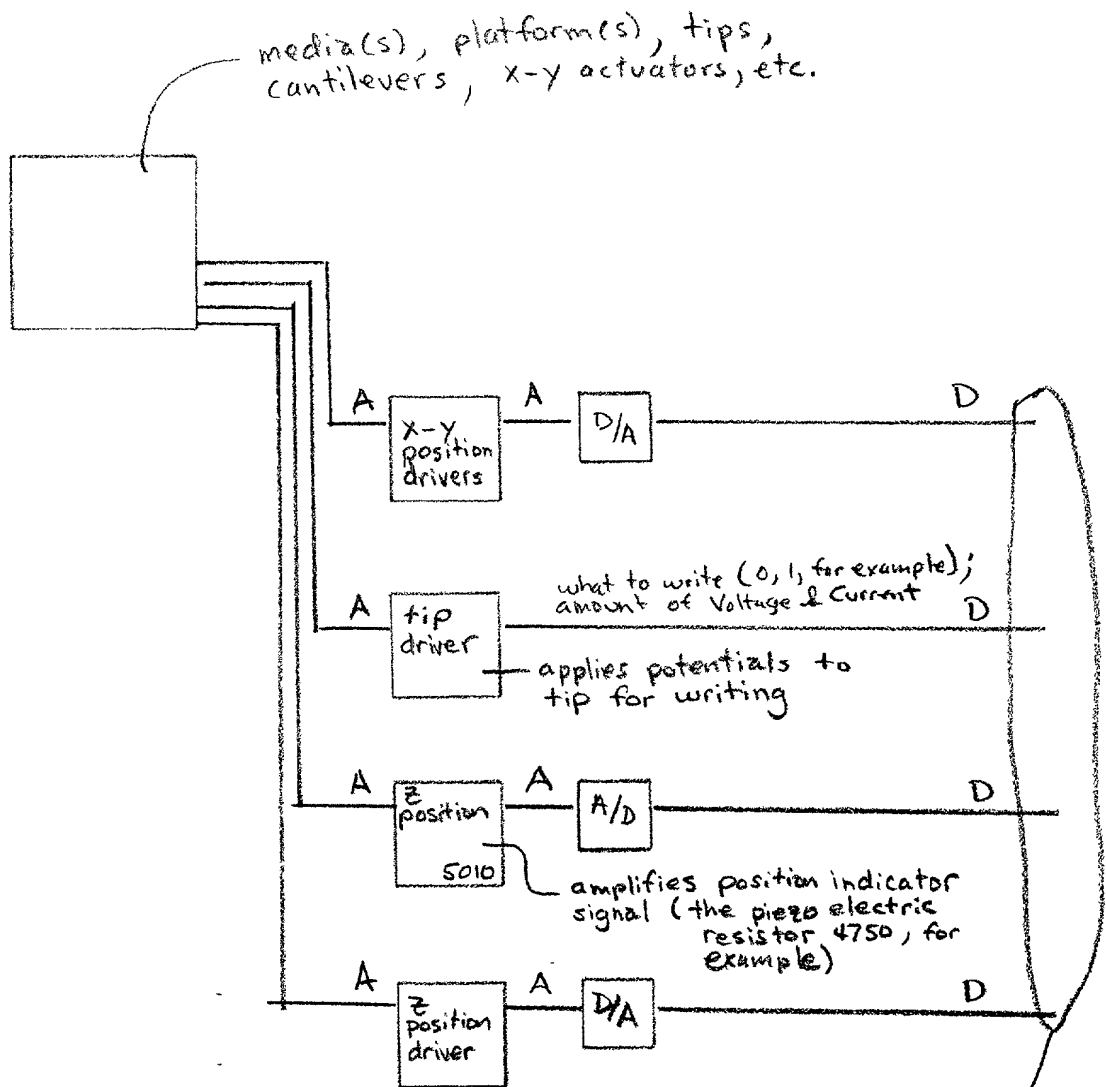 media(s), platform(s), tips,
cantilevers, x-y actuators, etc.
A
x-y
position
drivers
A
D/A
D
A
tip
driver
what to write (0, 1, for example);
amount of Voltage & Current
D
applies potentials to
tip for writing
A
z
position
5010
A
A/D
D
amplifies position indicator
signal (the piezo electric
resistor 4750, for
example)
A
z
position
driver
A
D/A
D